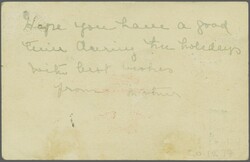 Hope you have a good
time during the holidays
with best wishes
from